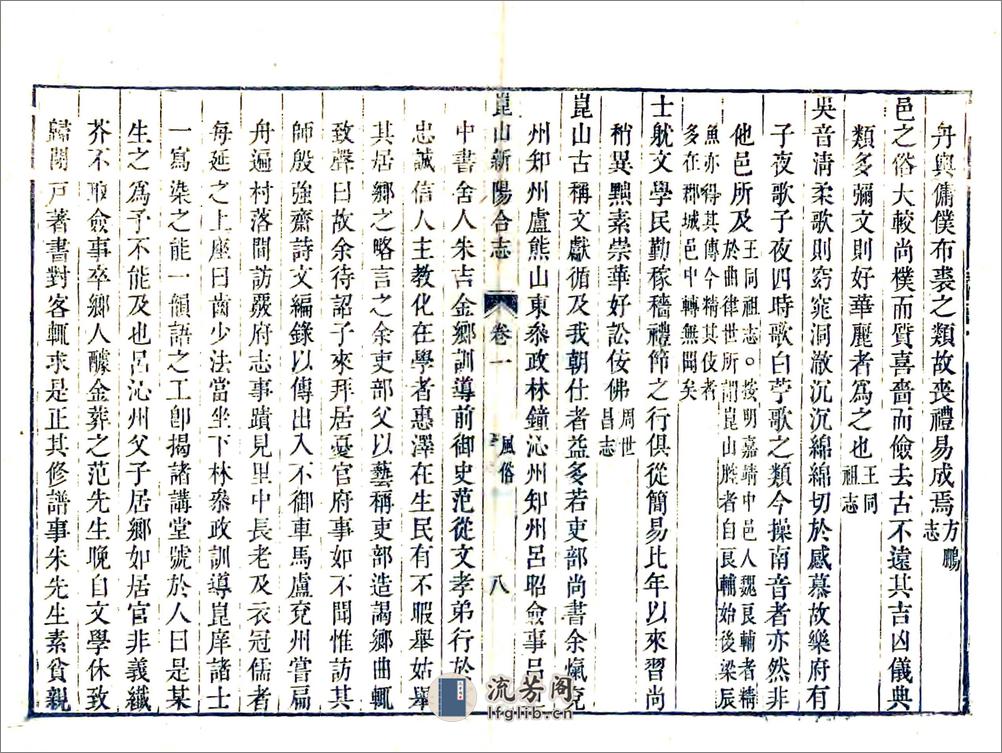 舟輿傭僕布裘之類故喪禮易成焉方鵬志
邑之俗大較尚樸而質喜嗇而儉去古不遠其吉凶儀典
類多彌文則好華麗者爲之也王同祖志
吳音清柔歌則窈窕洞澈沉沉綿綿切於感慕故樂府有
子夜歌子夜四時歌白苧歌之類今操南音者亦然非
他邑所及王同祖志○按明嘉靖中邑人魏良輔者精於曲律世所謂崑山腔者自良輔始後梁辰
魚亦得其傳今精其伎者多在郡城邑中轉無聞矣
士躭文學民勤稼穡禮節之行俱從簡易比年以來習尚
稍異黜素崇華好訟佞佛周世昌志
崑山古稱文獻循及我朝仕者益多若吏部尚書余熂兗
州知州盧熊山東叅政林鐘沁州知州呂昭僉事呂
崑山新陽合志
卷一
風俗
八
中書舍人朱吉金鄉訓導前御史范從文孝弟行於
忠誠信人主教化在學者惠澤在生民有不暇舉姑舉
其居鄉之略言之余吏部父以藝稱吏部造謁鄉曲輒
致聲曰故余待詔子來拜居憂官府事如不聞惟訪其
師殷強齋詩文編錄以傳出入不御車馬盧兗州嘗扁
舟遍村落間訪輟府志事蹟見里中長老及衣冠儒者
每延之上座曰齒少法當坐下林叅政訓導崑庠諸士
一寫染之能一韻語之工卽揭諸講堂號於人曰是某
生之爲予不能及也呂沁州父子居鄉如居官非義纖
芥不取僉事卒鄉人醵金葬之范先生晚自文學休致
歸閉戸著書對客輒求是正其修譜事朱先生素貧親
流芳阁
lfglib.cn